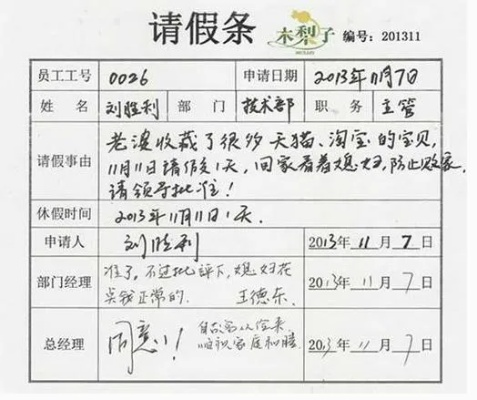 请假条 木梨子 编号:201311
员工工号 0026 申请日期 2013年11月7日
姓 名 刘胜利 部 门 技术部 职 务 主管
请假事由 老婆收藏了很多天猫、淘宝的宝贝,
11月11日请假1天,回家看着媳妇,防止败家,
请领导批准!
休假时间 2013年11月11日1天.
申请人 刘胜利 2013年 11月 7日
部门经理 准了,不过批评下,媳妇花
点钱正常的. 王德东 2013年 11月 7日
总经理 同意!! 自古
家庭和睦 2013年 11月 7日